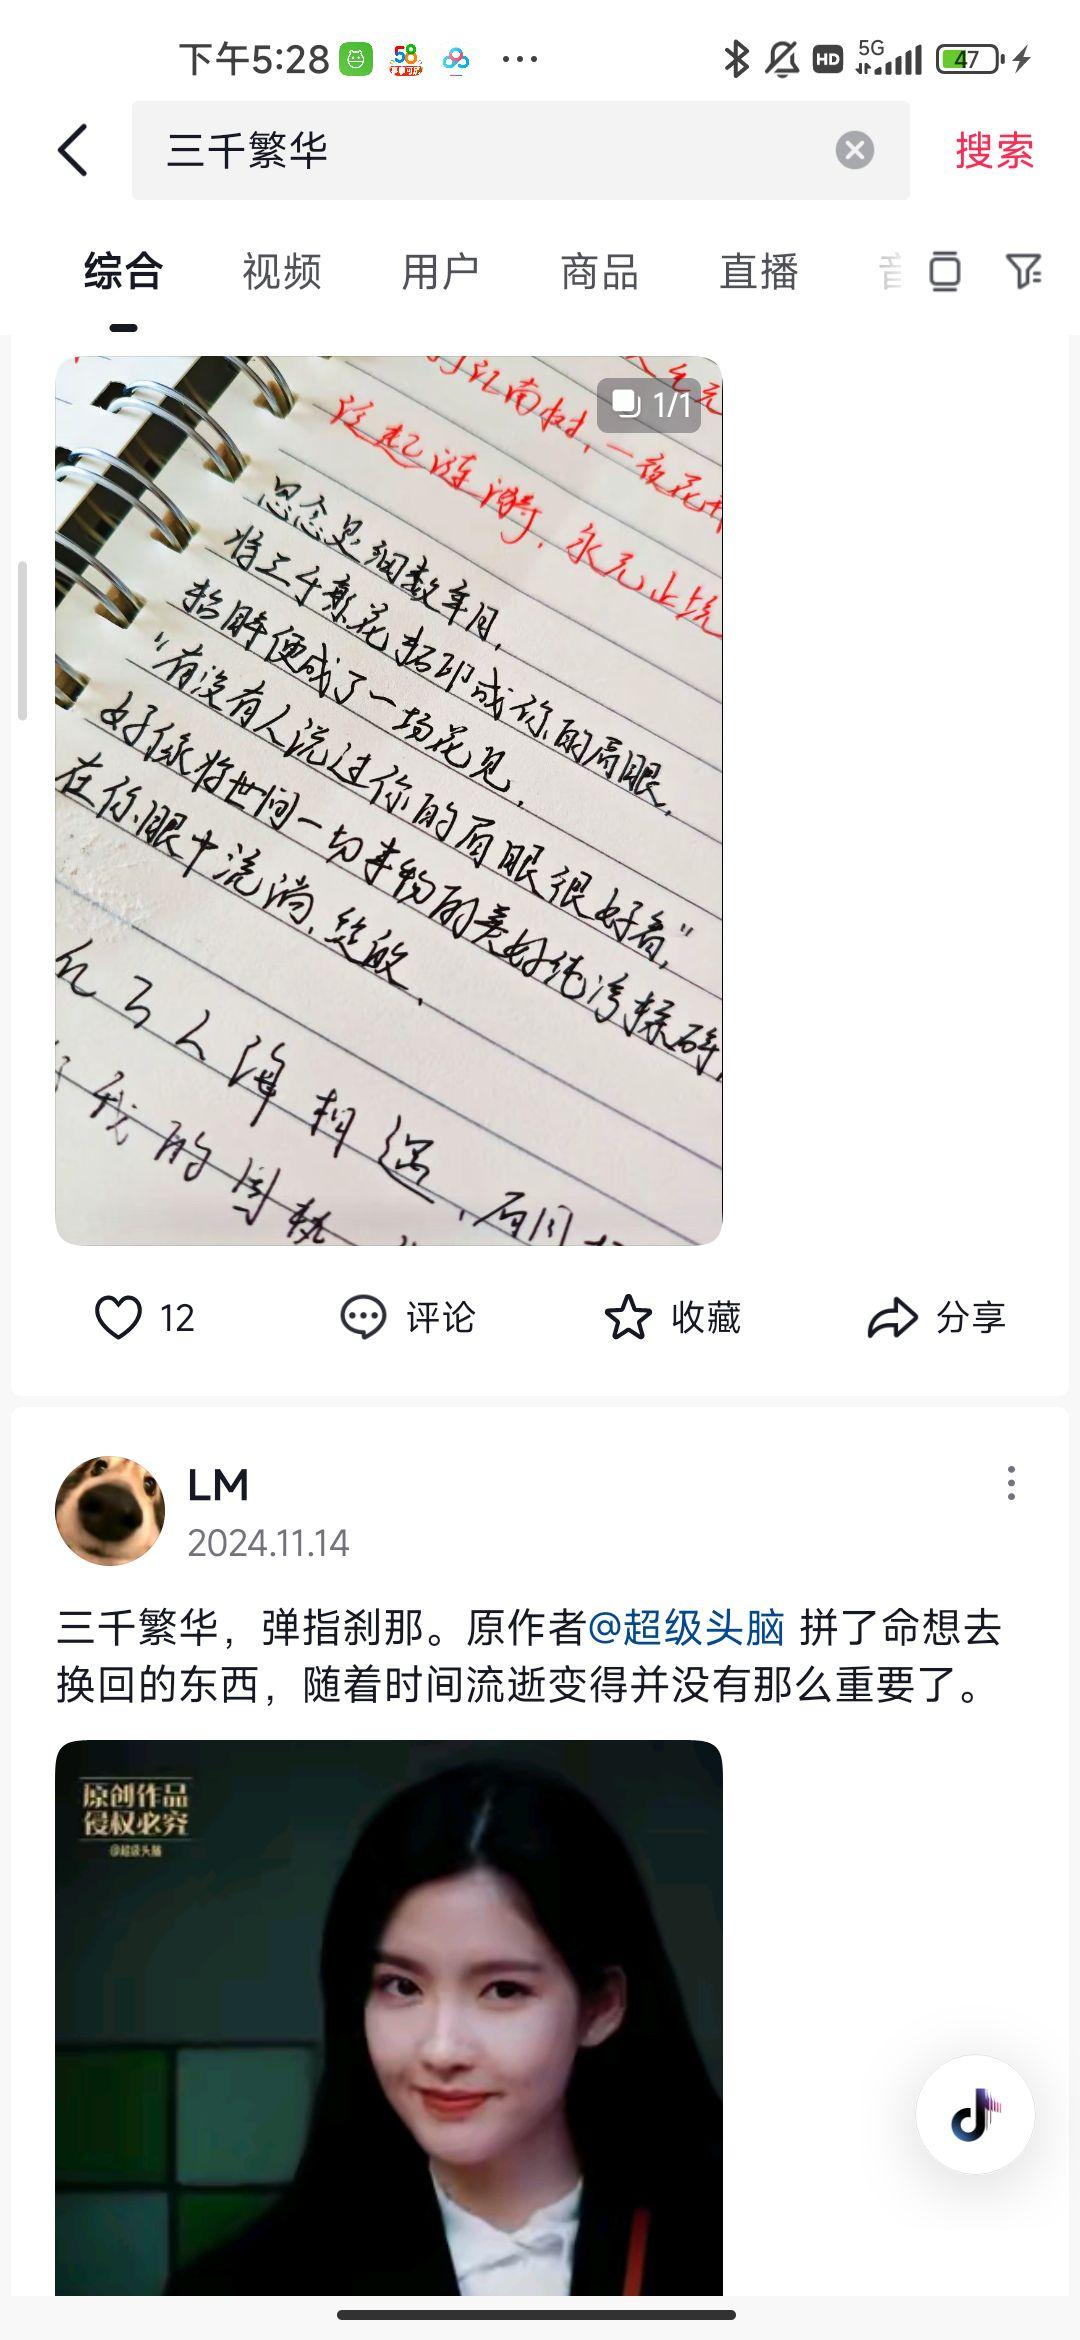 下午5:28
58
HD
5G
47
三千繁华
搜索
综合
视频
用户
商品
直播
1/1
江南树,一夜花
泛起涟漪,永无止境
思念是细数年月,
将三千繁花拓印成你的眉眼,
抬眸便成了一场花见,
“有没有人说过你的眉眼很好看”
好似将世间一切事物的美好纯净揉碎,
在你眼中流淌,绽放、
人海相遇,
我的
12
评论
收藏
分享
LM
2024.11.14
三千繁华，弹指刹那。原作者@超级头脑 拼了命想去
换回的东西，随着时间流逝变得并没有那么重要了。
原创作品
侵权必究
@超级头脑